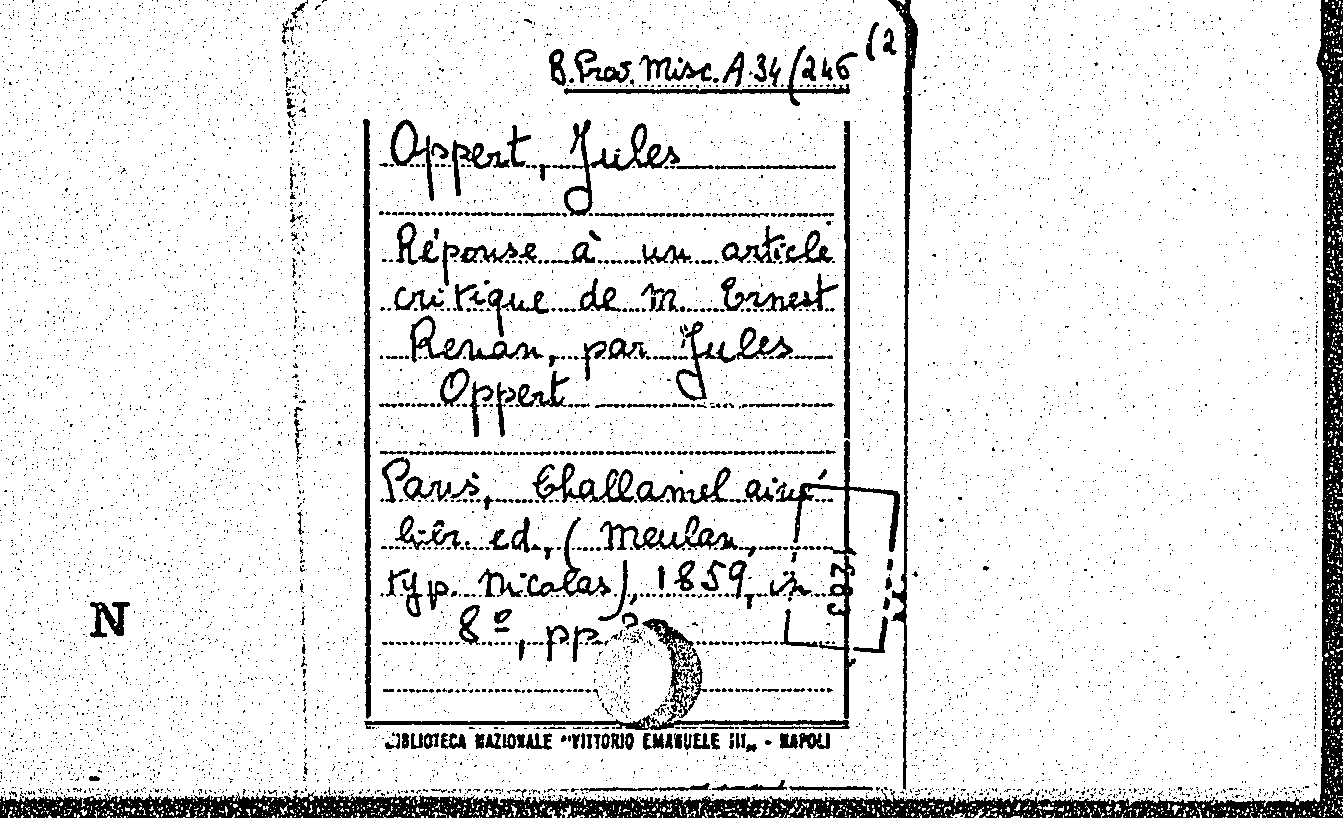 B. Prov. Misc. A 34 (246 (2
Oppert, Jules
Réponse à un article
critique de M. Ernest
Renan, par Jules
Oppert
Paris, Challamel ainé
libr. ed., (Meulan,
typ. Nicolas), 1859, in
8º, pp.
N
BIBLIOTECA NAZIONALE "VITTORIO EMANUELE III" - NAPOLI